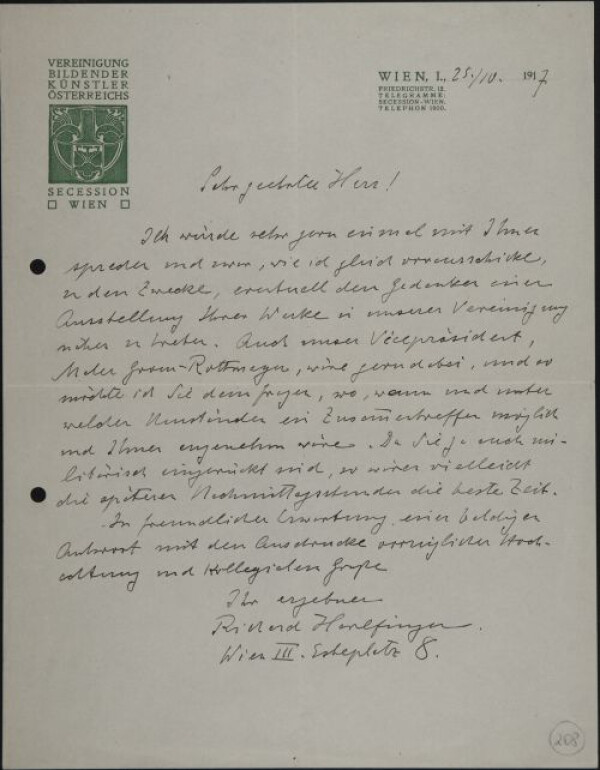 VEREINIGUNG
BILDENDER
KÜNSTLER
ÖSTERREICHS
SECESSION
WIEN
WIEN, I., 25./IV. 1917
FRIEDRICHSTR. 12.
TELEGRAMME:
SECESSION-WIEN.
TELEPHON
Sehr geehrter Herr!
Ich würde sehr gern einmal mit Ihnen
sprechen und zwar, wie ich gleich vorausschicke,
zu dem Zwecke, eventuell den Gedanken einer
Ausstellung Ihrer Werke in unserer Vereinigung
näher zu treten. Auch unser Vicepräsident,
Maler Grom-Rottmayer, wäre gern dabei, und so
möchte ich Sie denn fragen, wo, wann und unter
welchen Umständen ein Zusammentreffen möglich
und Ihnen angenehm wäre. Da Sie ja auch mi-
litärisch eingerückt sind, so wären vielleicht
die späteren Nachmittagsstunden die beste Zeit.
In freundlicher Erwartung einer baldigen
Antwort mit dem Ausdrucke vorzüglicher Hoch-
achtung und kollegialen Grüße
Ihr ergebener
Richard Harlfinger.
Wien III. 8.
208